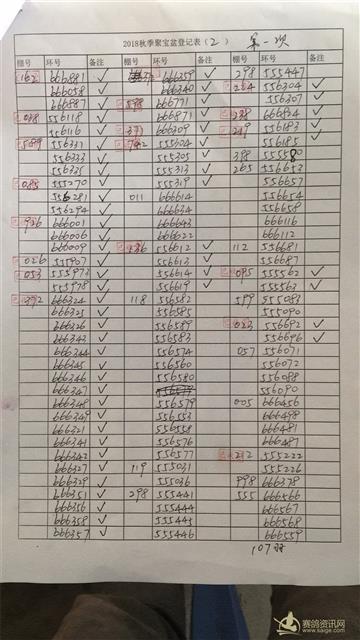 2018秋季聚宝盆登记表（2） 第一次
棚号 环号 备注 棚号 环号 备注 棚号 环号 备注
162 666881 ✓ 666359 ✓ 298 555447
666058 ✓ 666340 ✓ 264 556304 ✓
666887 ✓ 598 666771 ✓ 556307 ✓
038 556118 ✓ 666871 ✓ 238 666824 ✓
556116 ✓ 371 666309 ✓ 219 556183 ✓
556331 ✓ 742 555304 ✓ 556185 ✓
556333 ✓ 555305 ✓ 398
556335 ✓ 555313 ✓ 265 556653
085 555270 ✓ 555319 ✓ 556657
556281 ✓ 011 666614 556654
556294 ✓ 666634 556658
936 666001 ✓ 666643 666116
666006 ✓ 666622 666112
666009 ✓ 336 556612 ✓ 112 556681
026 555907 ✓ 556613 ✓ 556687
053 555973 ✓ 556614 ✓ 095 555562 ✓
555978 ✓ 556619 ✓ 555563 ✓
372 666324 ✓ 118 556582 599 955083
666325 ✓ 556585 555090
666326 ✓ 556589 023 556692 ✓
666343 ✓ 556583 556696 ✓
666344 ✓ 556574 057 556071
666345 ✓ 556560 556072
666346 ✓ 556580 556088
666347 ✓ 556090
666348 ✓ 556579 005 666456
666349 ✓ 556553 666498
666321 ✓ 556558 666481
666341 ✓ 556576 666487
666342 ✓ 556577 212 555222
666327 ✓ 119 555031 555226
666329 ✓ 555036 998 666378
666351 ✓ 298 555441 555 666566
666356 ✓ 555444 666567
666358 ✓ 555445 666568
666357 ✓ 555446 666559
107羽
赛鸽资讯网
www.saige.com